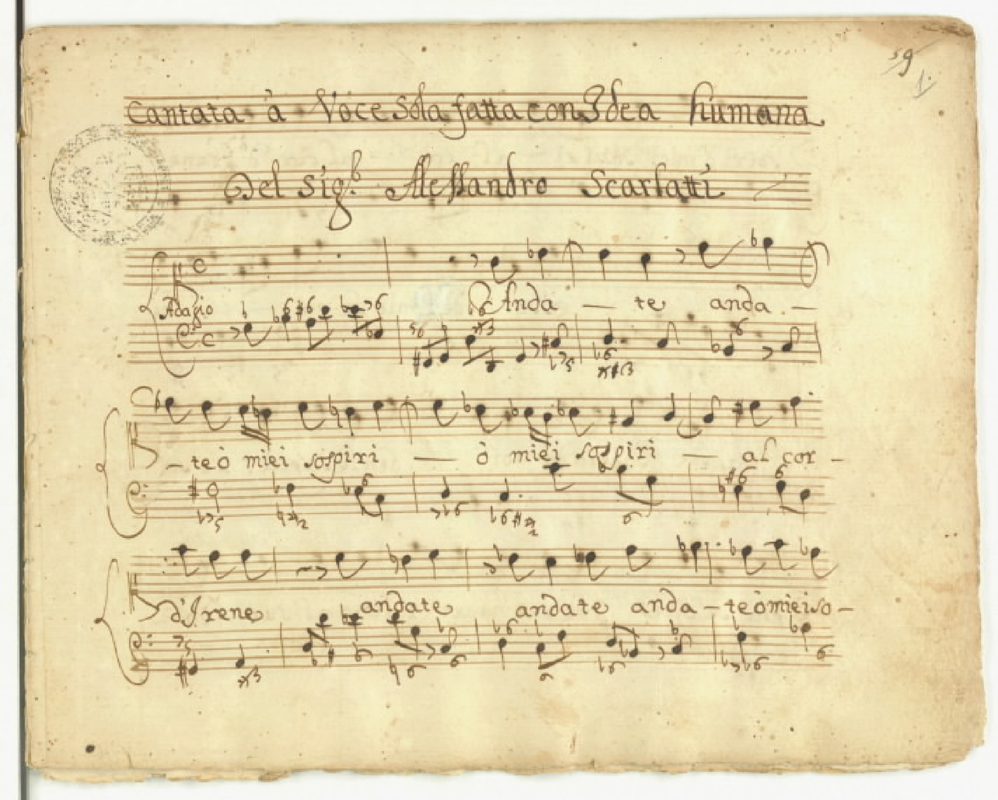 59
1.
Cantata à Voce Sola fatta con Idea humana
Del Sig.r Alessandro Scarlatti
Anda — te anda —
Adagio
— te ò miei sospiri — ò miei sospiri — al cor —
d'Irene andate andate anda — te ò miei so —